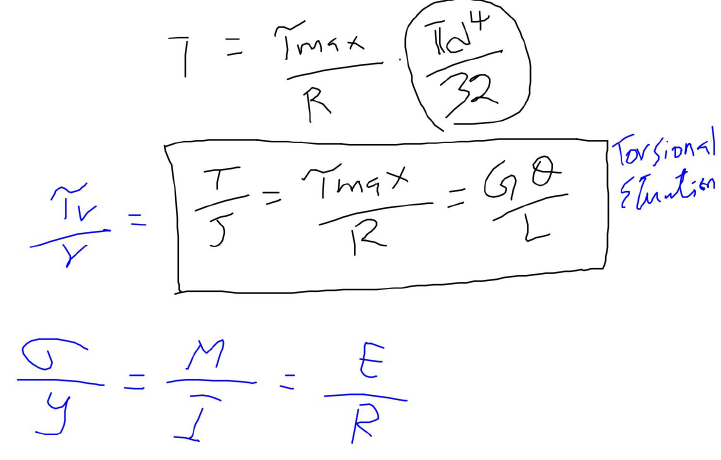 T = τmax/R · πd⁴/32
τr/r = T/J = τmax/R = Gθ/L Torsional
Equation
σ/y = M/I = E/R